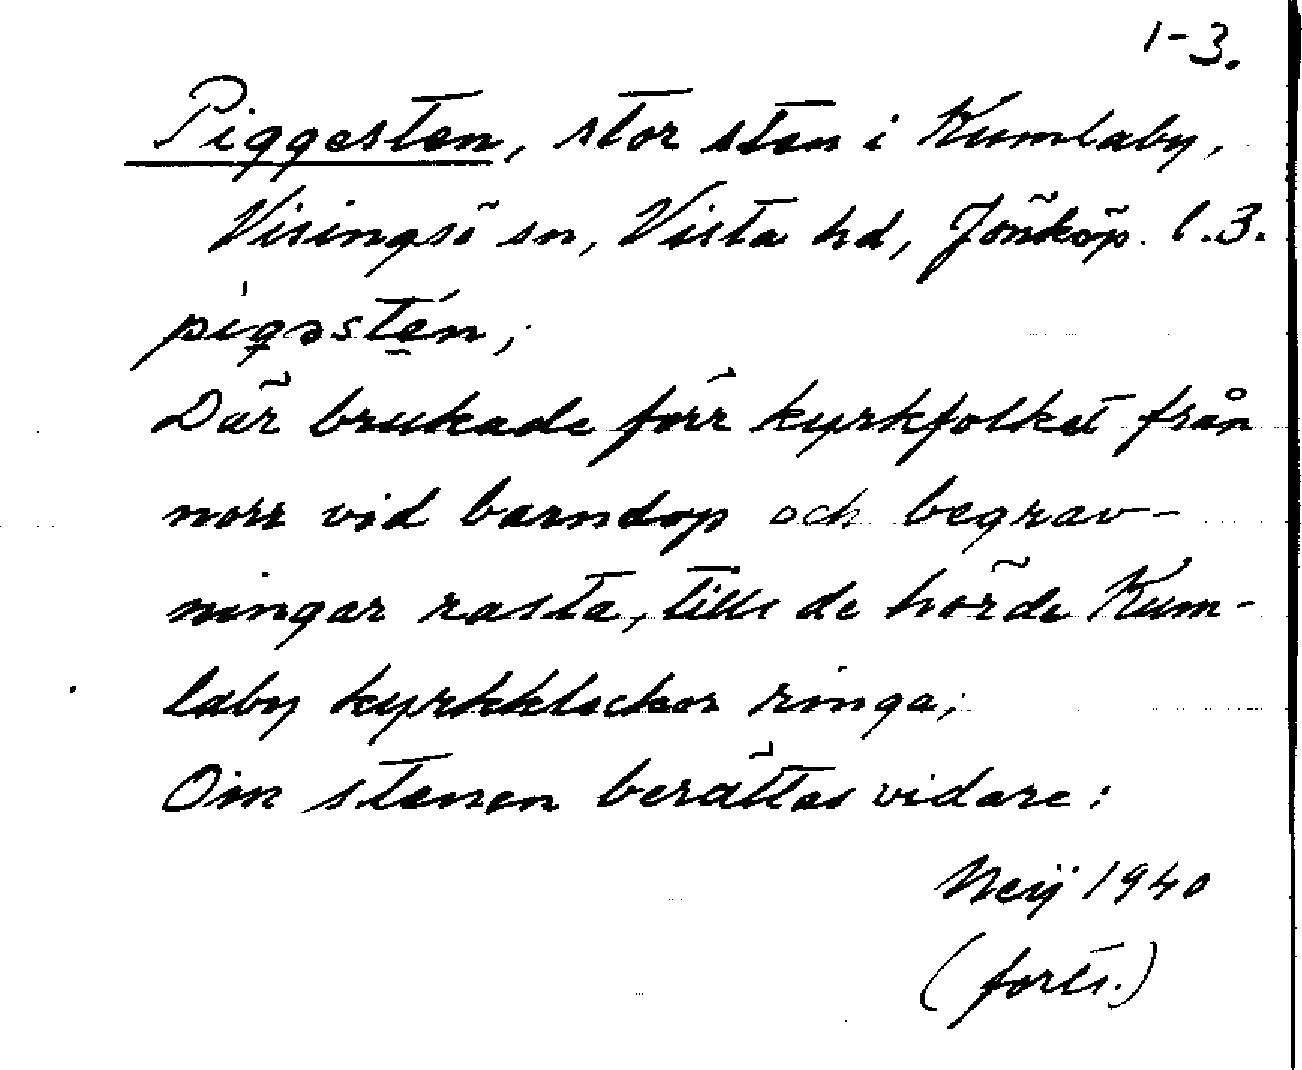 1-3.
Piggesten, stor sten i Kumlaby,
Visingsö sn, Vista hd, Jönköp. l. 3.
pigəstén,
Där brukade förr kyrkfolket från
norr vid barndop och begrav-
ningar rasta, tills de hörde Kum-
laby kyrkklockor ringa;
Om stenen berättas vidare:
Neij 1940
(forts.)